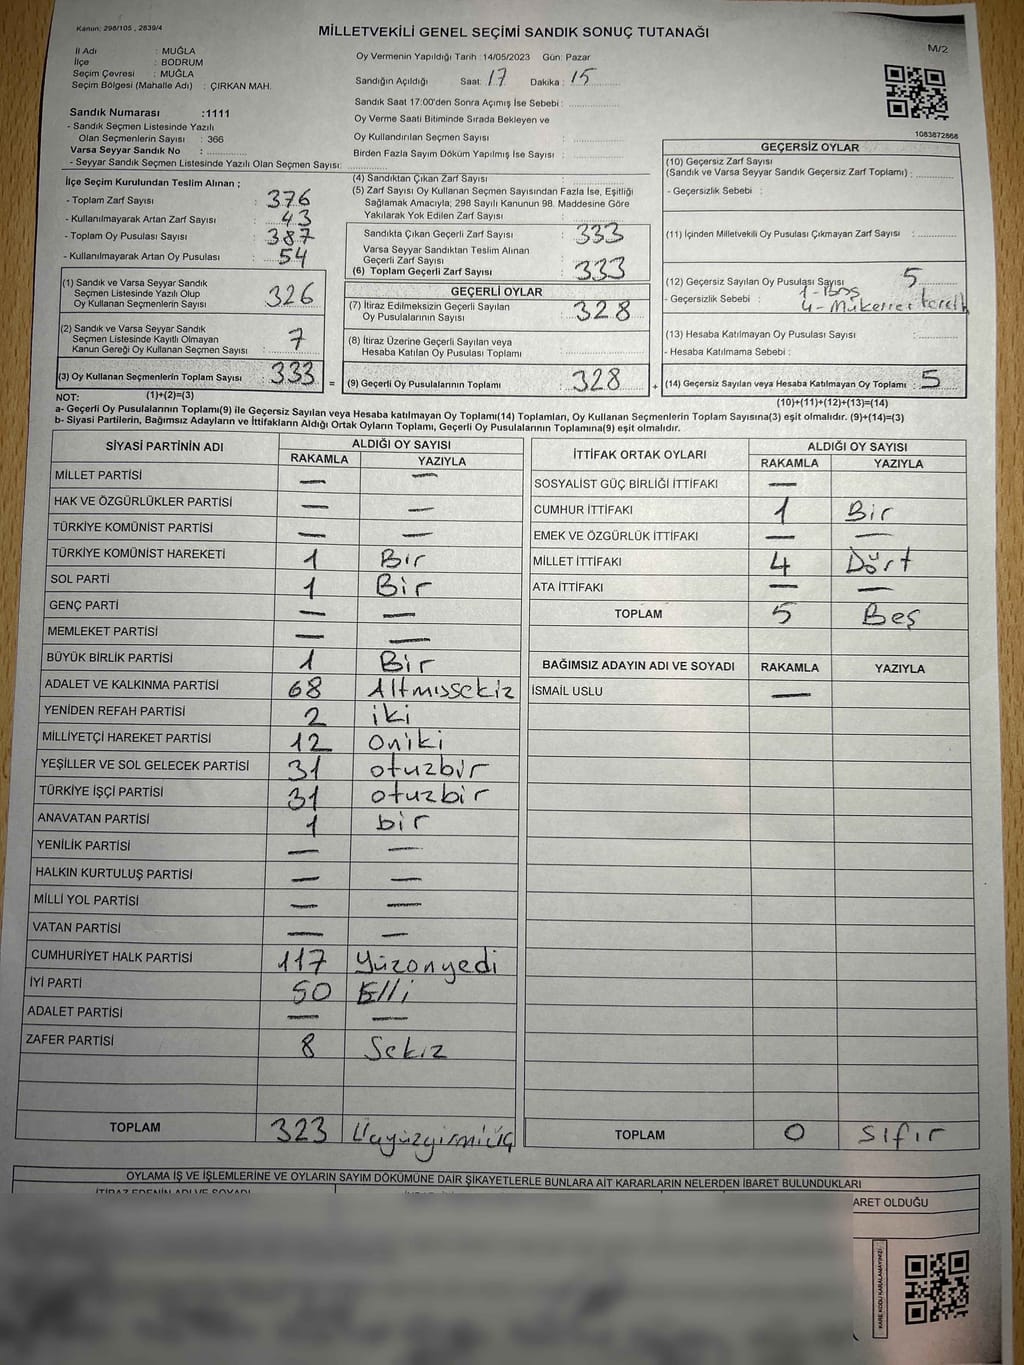 Kanun: 298/105 , 2839/4
MİLLETVEKİLİ GENEL SEÇİMİ SANDIK SONUÇ TUTANAĞI
M/2
İl Adı : MUĞLA
İlçe : BODRUM
Seçim Çevresi : MUĞLA
Seçim Bölgesi (Mahalle Adı) : ÇIRKAN MAH.
Oy Vermenin Yapıldığı Tarih : 14/05/2023 Gün: Pazar
Sandığın Açıldığı Saat: 17 Dakika : 15
Sandık Saat 17:00'den Sonra Açımış İse Sebebi :
Oy Verme Saati Bitiminde Sırada Bekleyen ve
Oy Kullandırılan Seçmen Sayısı :
Birden Fazla Sayım Döküm Yapılmış İse Sayısı :
Sandık Numarası :1111
- Sandık Seçmen Listesinde Yazılı
Olan Seçmenlerin Sayısı : 366
Varsa Seyyar Sandık No :
- Seyyar Sandık Seçmen Listesinde Yazılı Olan Seçmen Sayısı:
1083872868
İlçe Seçim Kurulundan Teslim Alınan ;
- Toplam Zarf Sayısı : 376
- Kullanılmayarak Artan Zarf Sayısı : 43
- Toplam Oy Pusulası Sayısı : 387
- Kullanılmayarak Artan Oy Pusulası : 54
(1) Sandık ve Varsa Seyyar Sandık
Seçmen Listesinde Yazılı Olup
Oy Kullanan Seçmenlerin Sayısı : 326
(2) Sandık ve Varsa Seyyar Sandık
Seçmen Listesinde Kayıtlı Olmayan
Kanun Gereği Oy Kullanan Seçmen Sayısı : 7
(3) Oy Kullanan Seçmenlerin Toplam Sayısı : 333 =
(4) Sandıktan Çıkan Zarf Sayısı :
(5) Zarf Sayısı Oy Kullanan Seçmen Sayısından Fazla İse, Eşitliği
Sağlamak Amacıyla; 298 Sayılı Kanunun 98. Maddesine Göre
Yakılarak Yok Edilen Zarf Sayısı :
Sandıkta Çıkan Geçerli Zarf Sayısı : 333
Varsa Seyyar Sandıktan Teslim Alınan
Geçerli Zarf Sayısı :
(6) Toplam Geçerli Zarf Sayısı : 333
GEÇERLİ OYLAR
(7) İtiraz Edilmeksizin Geçerli Sayılan
Oy Pusulalarının Sayısı : 328
(8) İtiraz Üzerine Geçerli Sayılan veya
Hesaba Katılan Oy Pusulası Toplamı :
(9) Geçerli Oy Pusulalarının Toplamı : 328 +
GEÇERSİZ OYLAR
(10) Geçersiz Zarf Sayısı
(Sandık ve Varsa Seyyar Sandık Geçersiz Zarf Toplamı) :
- Geçersizlik Sebebi :
(11) İçinden Milletvekili Oy Pusulası Çıkmayan Zarf Sayısı :
(12) Geçersiz Sayılan Oy Pusulası Sayısı : 5
- Geçersizlik Sebebi : 1-Boş
4-Mükerrer tercih
(13) Hesaba Katılmayan Oy Pusulası Sayısı :
- Hesaba Katılmama Sebebi :
(14) Geçersiz Sayılan veya Hesaba Katılmayan Oy Toplamı : 5
NOT: (1)+(2)=(3)
(10)+(11)+(12)+(13)=(14)
a- Geçerli Oy Pusulalarının Toplamı(9) ile Geçersiz Sayılan veya Hesaba katılmayan Oy Toplamı(14) Toplamları, Oy Kullanan Seçmenlerin Toplam Sayısına(3) eşit olmalıdır. (9)+(14)=(3)
b- Siyasi Partilerin, Bağımsız Adayların ve İttifakların Aldığı Ortak Oyların Toplamı, Geçerli Oy Pusulalarının Toplamına(9) eşit olmalıdır.
SİYASİ PARTİNİN ADI ALDIĞI OY SAYISI
RAKAMLA YAZIYLA
MİLLET PARTİSİ — —
HAK VE ÖZGÜRLÜKLER PARTİSİ — —
TÜRKİYE KOMÜNİST PARTİSİ — —
TÜRKİYE KOMÜNİST HAREKETİ 1 Bir
SOL PARTİ 1 Bir
GENÇ PARTİ — —
MEMLEKET PARTİSİ — —
BÜYÜK BİRLİK PARTİSİ 1 Bir
ADALET VE KALKINMA PARTİSİ 68 Altmışsekiz
YENİDEN REFAH PARTİSİ 2 iki
MİLLİYETÇİ HAREKET PARTİSİ 12 oniki
YEŞİLLER VE SOL GELECEK PARTİSİ 31 otuzbir
TÜRKİYE İŞÇİ PARTİSİ 31 otuzbir
ANAVATAN PARTİSİ 1 bir
YENİLİK PARTİSİ — —
HALKIN KURTULUŞ PARTİSİ — —
MİLLİ YOL PARTİSİ — —
VATAN PARTİSİ — —
CUMHURİYET HALK PARTİSİ 117 Yüzonyedi
İYİ PARTİ 50 Elli
ADALET PARTİSİ — —
ZAFER PARTİSİ 8 Sekiz
TOPLAM 323 Üçyüzyirmiüç
İTTİFAK ORTAK OYLARI ALDIĞI OY SAYISI
RAKAMLA YAZIYLA
SOSYALİST GÜÇ BİRLİĞİ İTTİFAKI —
CUMHUR İTTİFAKI 1 Bir
EMEK VE ÖZGÜRLÜK İTTİFAKI — —
MİLLET İTTİFAKI 4 Dört
ATA İTTİFAKI — —
TOPLAM 5 Beş
BAĞIMSIZ ADAYIN ADI VE SOYADI RAKAMLA YAZIYLA
İSMAİL USLU —
TOPLAM 0 Sıfır
OYLAMA İŞ VE İŞLEMLERİNE VE OYLARIN SAYIM DÖKÜMÜNE DAİR ŞİKAYETLERLE BUNLARA AİT KARARLARIN NELERDEN İBARET BULUNDUKLARI
İTİRAZ EDENİN ADI VE SOYADI
ARET OLDUĞU
KARE KODU KARALAMAYINIZ!